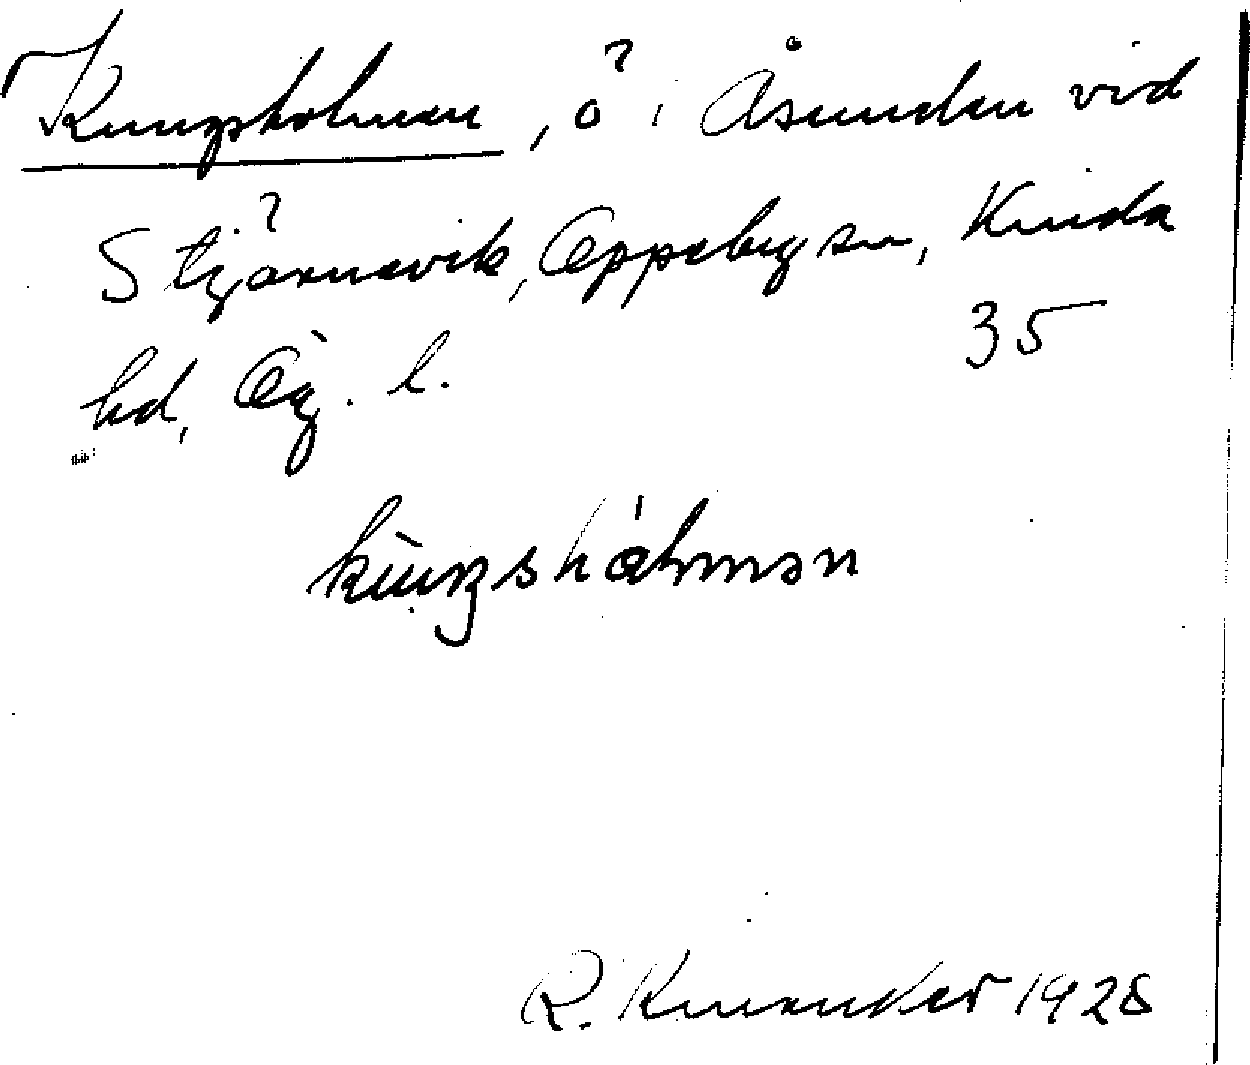 Kungsholmen, ö i Åsunden vid
Stjärnevik, Oppeby sn, Kinda
hd, Ög. l. 35
kùŋshálmən
R. Kinander 1928